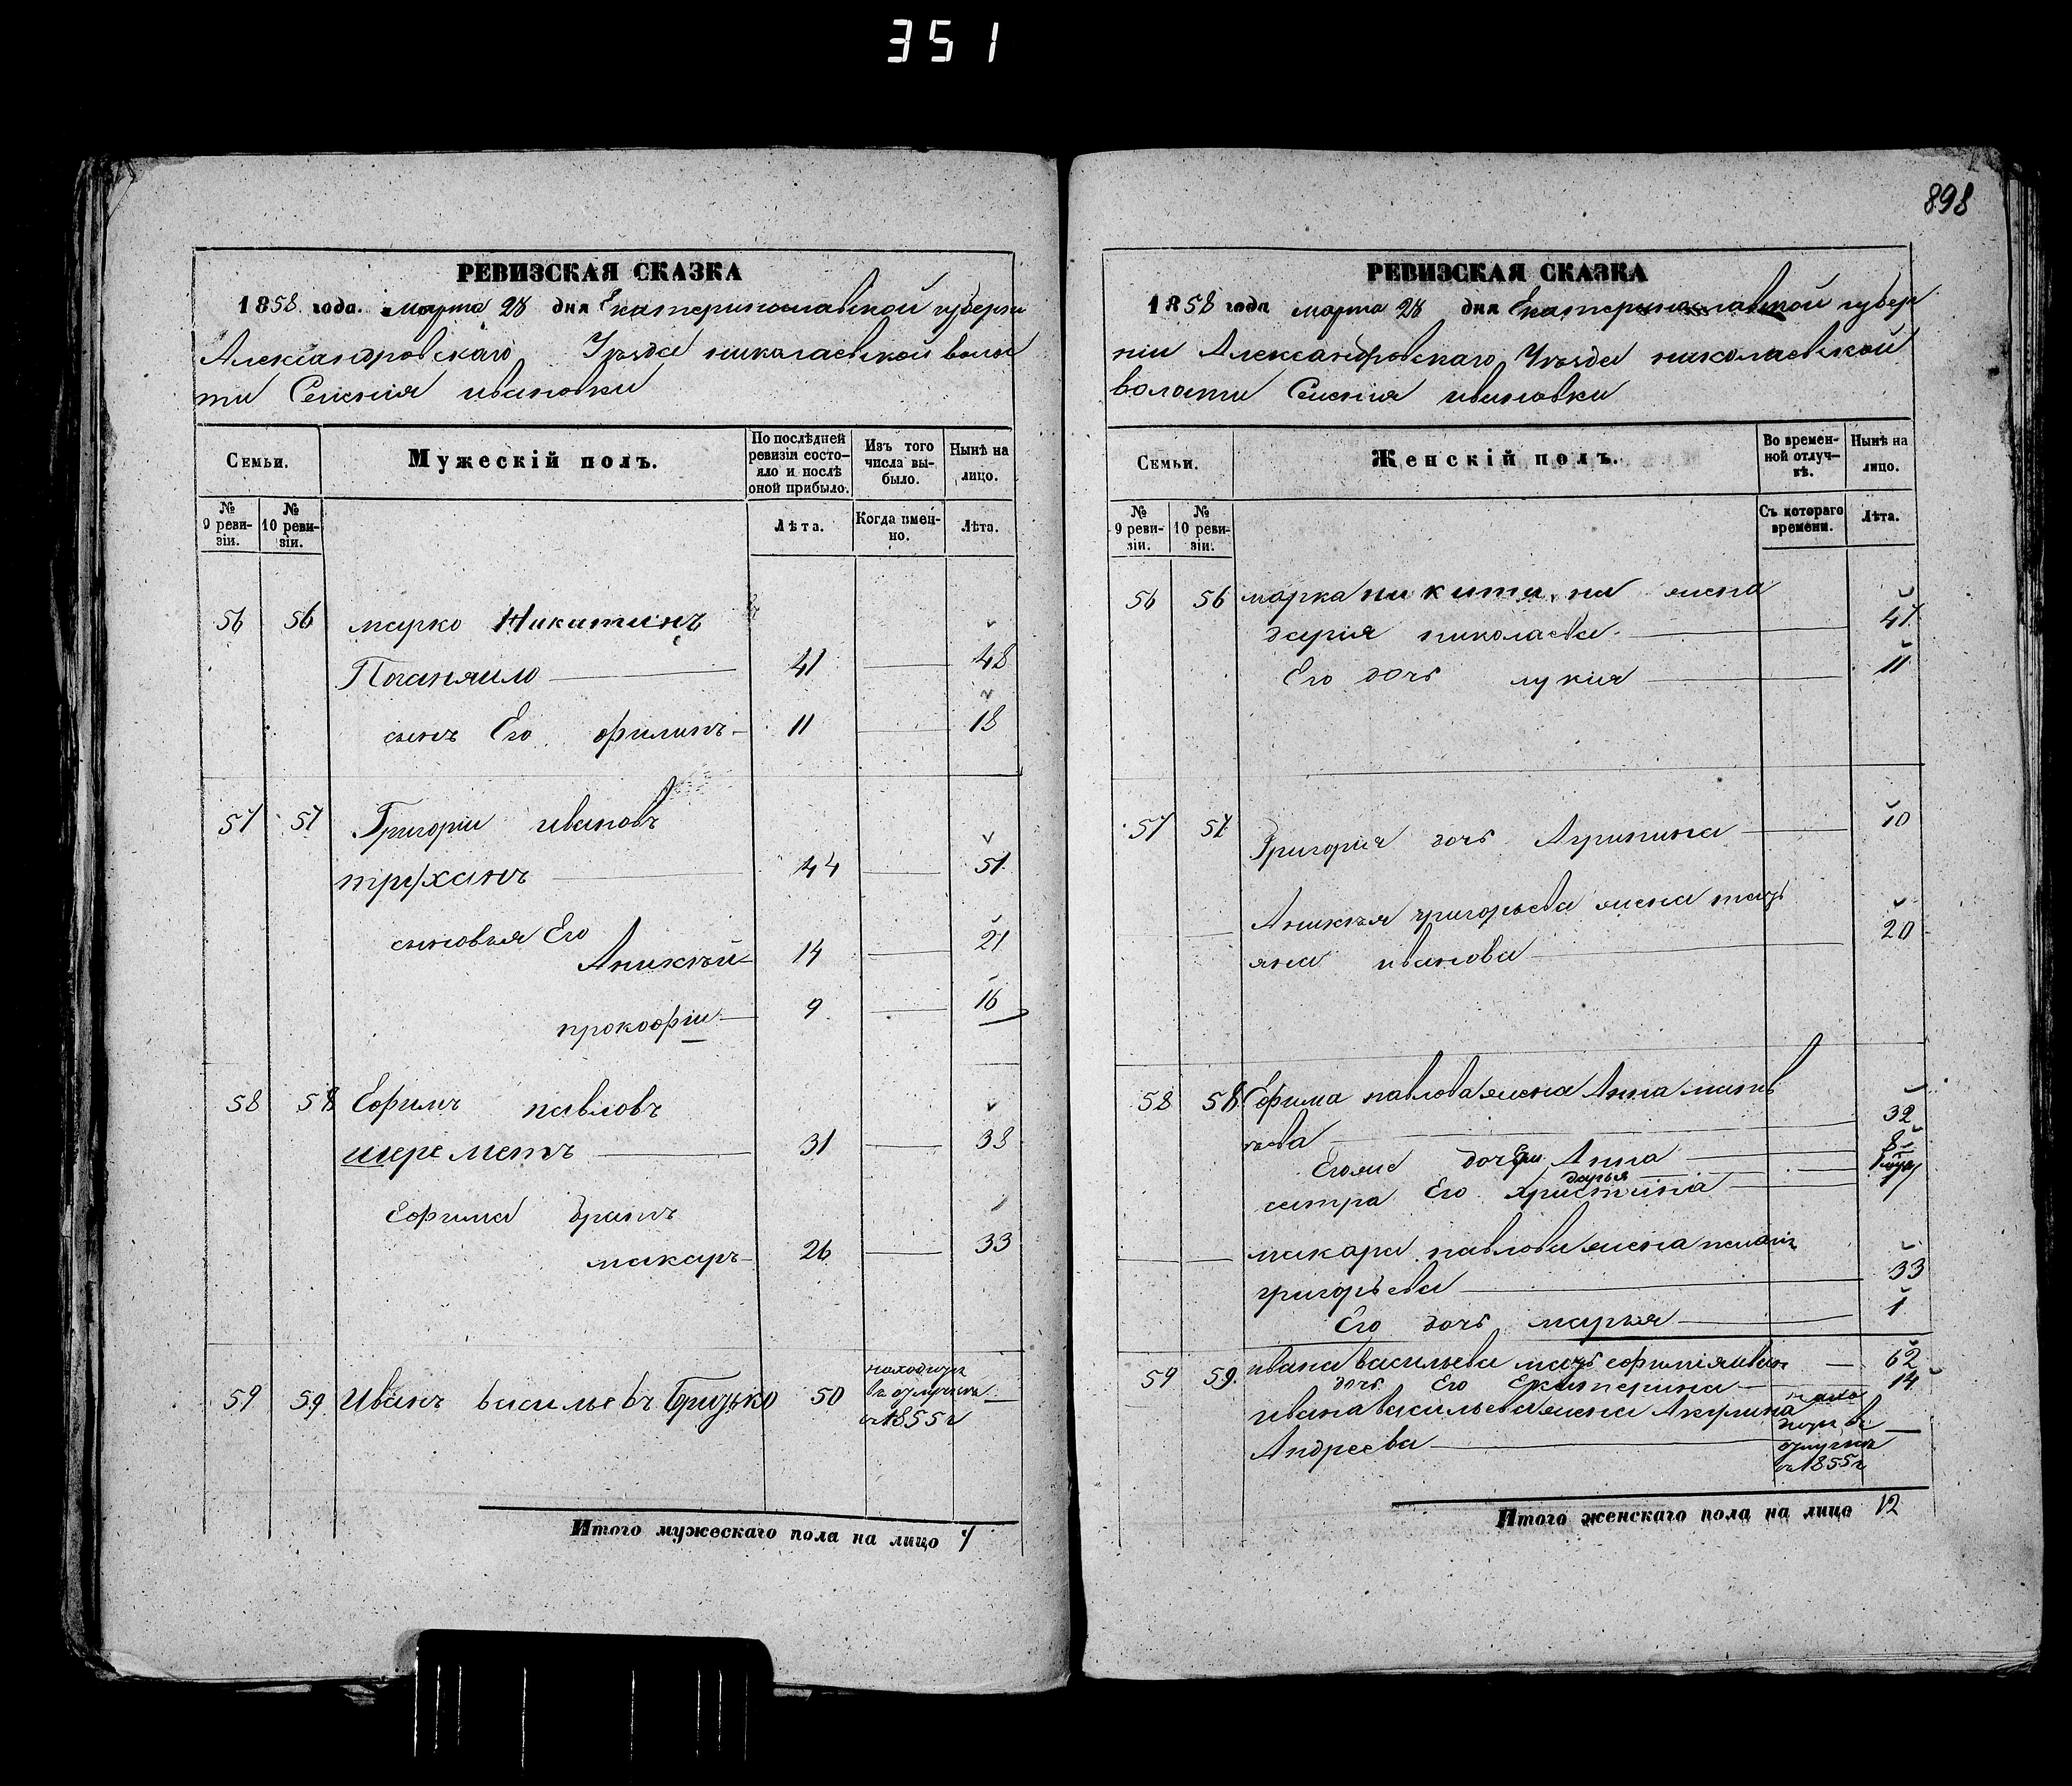 351
РЕВИЗСКАЯ СКАЗКА
1858 года. марта 28 дня Екатеринославской губерни
Александровскаго Уѣзда николаевской волос
ти Селения ивановки
Семьи.
Мужескій полъ.
По послѣдней ревизіи состо-
яло и послѣ
оной прибыло.
Изъ того
числа вы-
было.
Нынѣ на
лицо.
№
9 реви-
зіи.
№
10 реви-
зіи.
Лѣта.
Когда имен-
но.
Лѣта.
56 56 марко Никитинъ
Поганяило 41 48
сынъ Его филипъ 11 18
57 57 Григории ивановъ
труханъ 44 51
сыновья Его
Аникѣй 14 21
прокофии 9 16
58 58 Ефимъ павловъ
шереметъ 31 38
Ефима братъ
макаръ 26 33
59 59 Иванъ васильевъ Гризько 50
с 1855 г
Итого мужескаго пола на лицо 7
898
РЕВИЗСКАЯ СКАЗКА
1858 года марта 28 дня Екатеринославской губер
ніи Александровскаго Уѣзда николаевской
волости Селения ивановки
Семьи.
Женскій полъ.
Во времен-
ной отлуч-
кѣ.
Нынѣ на
лицо.
№
9 реви-
зіи.
№
10 реви-
зіи.
Съ котораго
времени.
Лѣта.
56 56 марка никитина жена
дария николаева 47
Его дочь лукия 11
57 57 Григория дочь Агрипина 10
Аникѣя григорьева жена тать
яна иванова 20
58 58 Ефима павлова жена Анна матв
ѣева 32
Егоже дочери Анна 8
дарья
сестра Его христина 17
макара павлова жена
григорьева 33
Его дочь марья 1
59 59 ивана васильева мать ефимия иван 62
дочь Его Екатерина 14
ивана васильева жена Акулина нахо
Андреева
с 1855 г
Итого женскаго пола на лицо 12